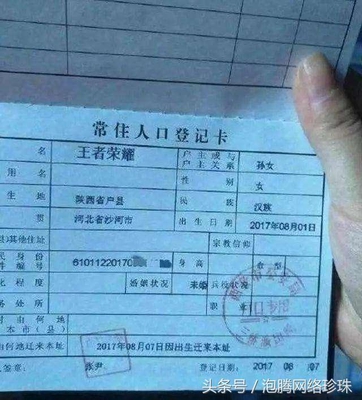 常住人口登记卡
名 王者荣耀 户主或与户主关系 孙女
用名 性别 女
生地 陕西省户县 民族 汉族
贯 河北省沙河市 出生日期 2017年08月01日
县)其他住址 宗教信仰
民身份件编号 61011220170 身高 血型
化程度 婚姻状况 未婚 兵役状况
务处所 职业
时由何地本市(县)
何时由何地迁来本址 2017年08月07日因出生迁来本址
人签章: 张尹 登记日期: 2017 08 07
头条号 / 泡腾网络珍珠